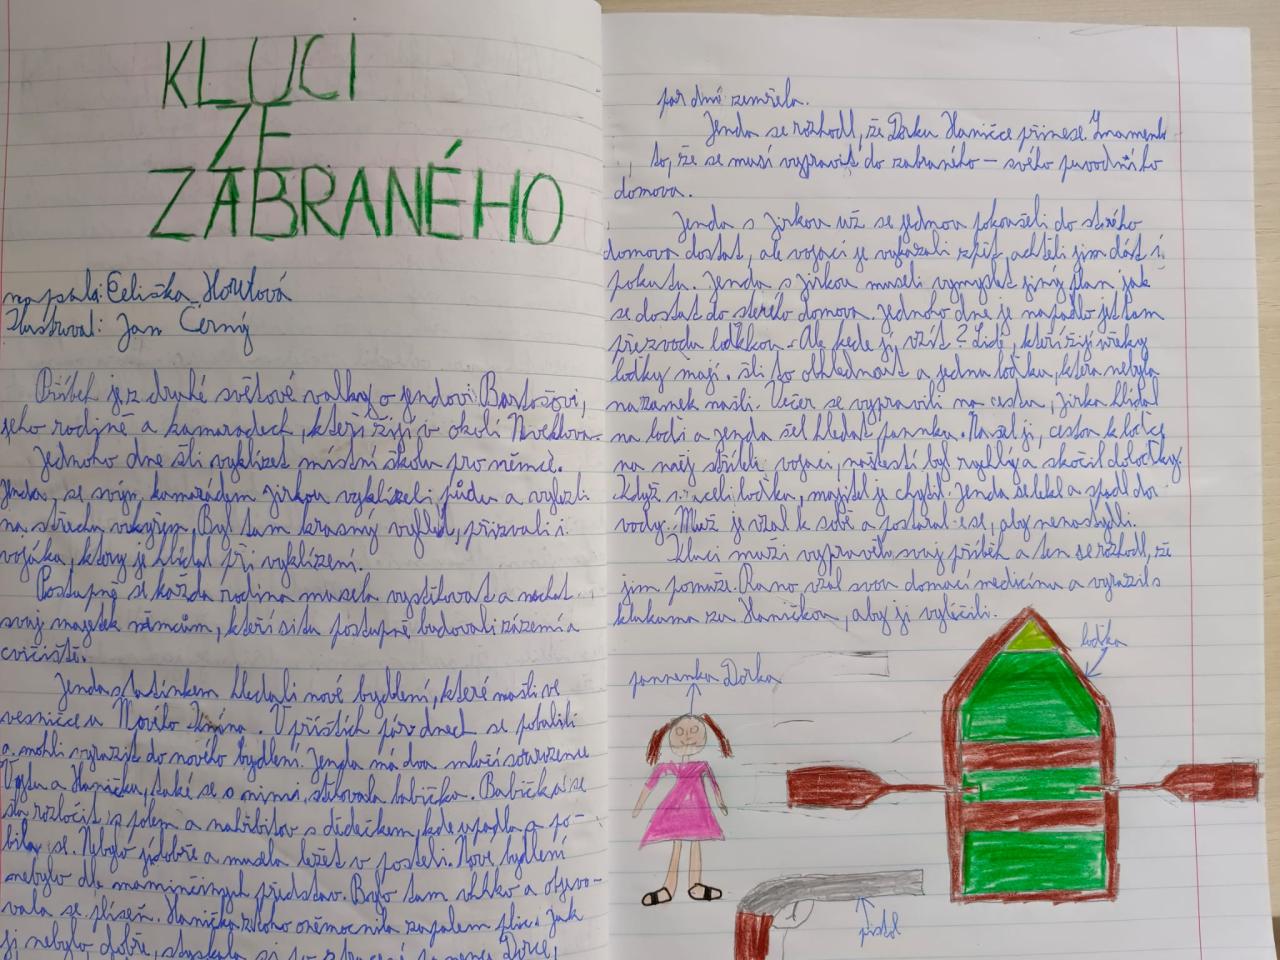 KLUCI
ZE
ZABRANÉHO
napsala: Eeliška Hourtová
Ilustroval: Jan Černý
Příběh je z druhé světové valky o jendovi Bartošovi,
jeho rodině a kamaradech, kteři žijí v okolí Neveklova.
Jednoho dne šli vyklízet místní školu pro němce.
Jenda, se svým, kamarádem Jirkou vyklízeli půdu a vylezli
na střechu vikýřem. Byl tam krasný vyhled, přizvali i
vojáka, ktory je hlídal při vyklízení.
Postupně se každa rodina musela vystěhovat a nechat
svuj majetek němcům, kteří si tu postupně budovali zázemí a
cvičiště.
Jenda s tatínkem hledali nové bydlení, které našli ve
vesničce u Nového Knína. V příštích pár dnech se pobalili
a mohli vyrazit do nového bydlení. Jenda má dva mlačí sourozence
Vojtu a Haničku, také se s nimi, stěhovala babička. Babička se
šla rozločit s polem a nahřbitov s dědečkem, kde upadla a po-
bila se. Nebylo jí dobře a musela ležet v posteli. Nové bydlení
nebylo dle maminčiných představ. Bylo tam vlhko a objevo-
vala se plíseň. Hanička z toho onemocněla zapalem plic. Jak
jí nebylo, dobře, stýskalo se jí po panence Dorce,
par dnů zemřela.
Jenda se rozhodl, že Dorku Haničce přinese. Znamenalo
to, že se musí vypravit do zabraného – svého puvodního
domova.
Jenda s Jirkou už se jednou pokoušeli do starého
domova dostat, ale vojaci je vykázali zpět, a chtěli jim dát i
pokutu. Jenda s Jirkou museli vymyslet jiný plan jak
se dostat do starého domova. Jednoho dne je napadlo jet tam
přezvodu loďkkou. Ale kede ji vzít? Lidé, kteří žijí u řeky
loďky mají. šli to ohlednout a jednu loďku, ktera nebyla
nazamek našli. Večer se vypravili na cestu, Jirka hlídal
na lodi a Jenda šel hledat pannku. Našel ji, cestou k loďce
na něj stříleli vojaci, naštestí byl rychlý a skočil določky.
Když vraceli loďku, majitel je chytil. Jenda se lekl a spadl do
vody. Muž je vzal k sobě a postaral ese, aby nenastydli.
Kluci muži vypravěli svuj příběh a ten se rozhodl, že
jim pomuže. Rano vzal svou domací medicínu a vyrazil s
klukama za Haničkou, aby ji vyléčili.
pannenka Dorka
loďka
pistol